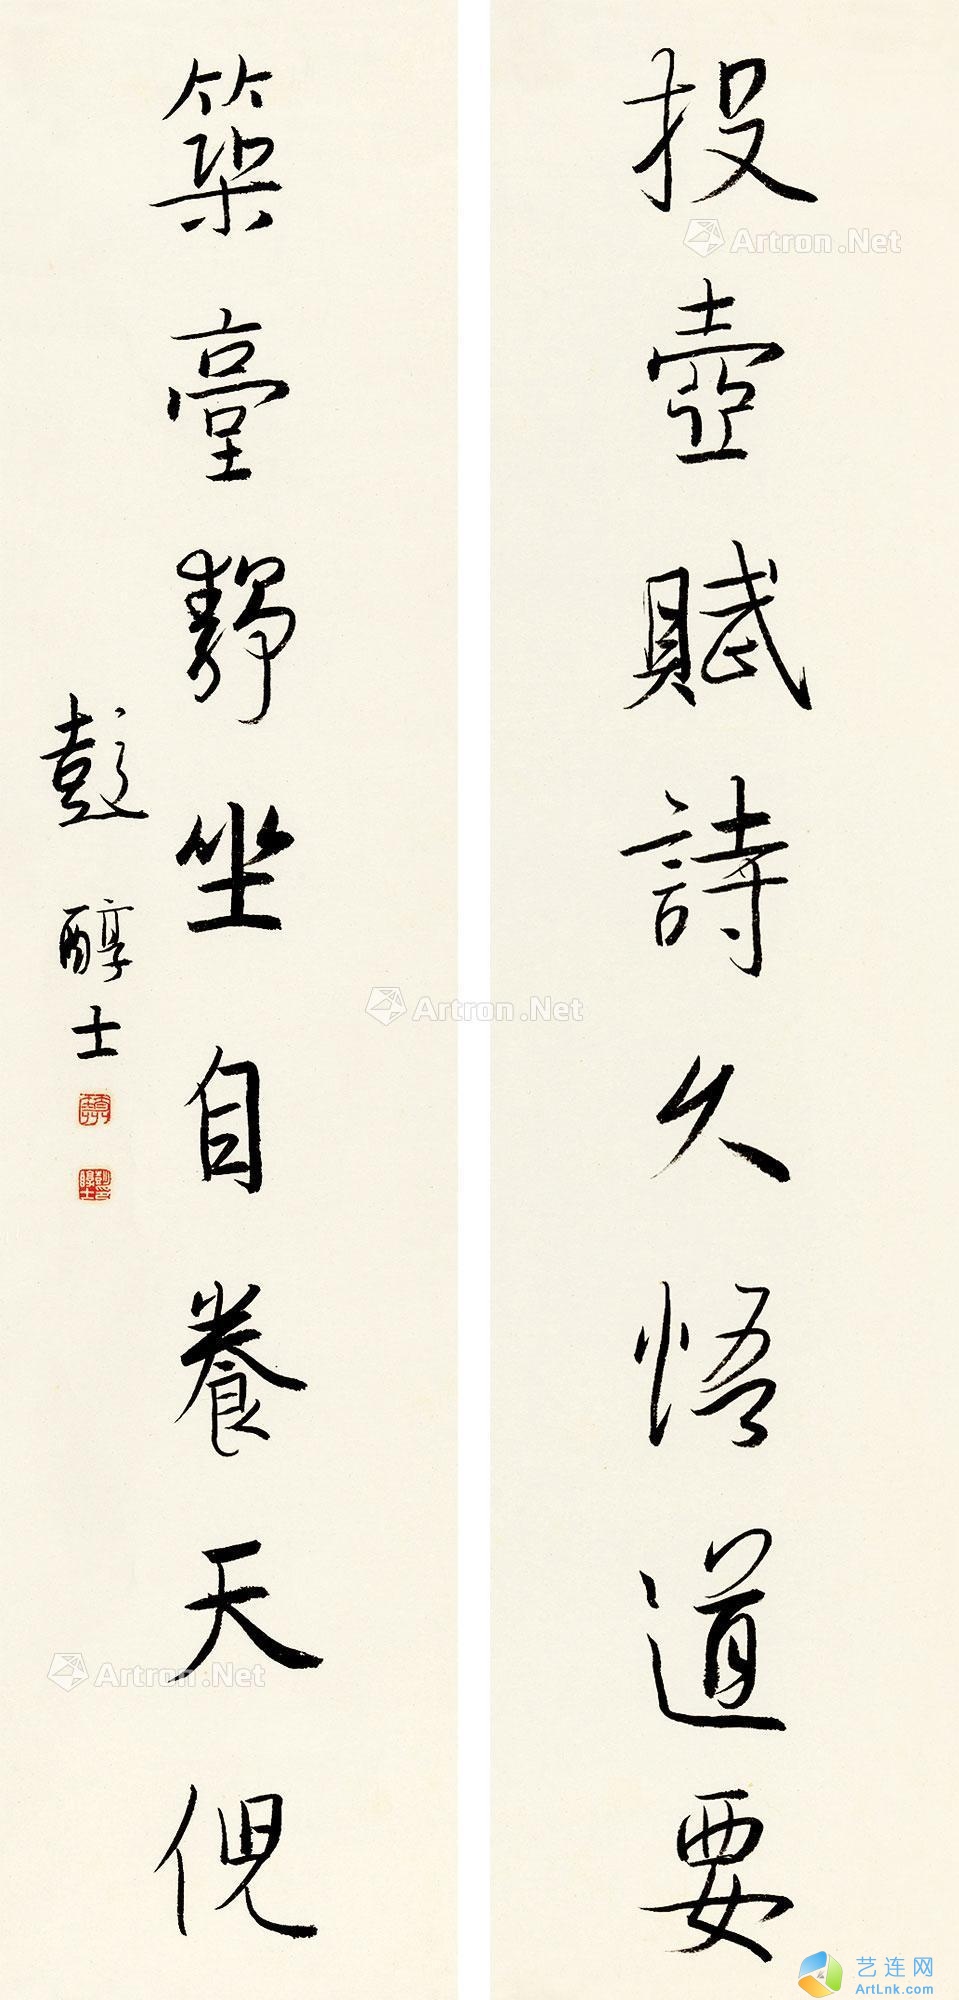 投壺賦詩久悟道要
築臺靜坐自養天倪
彭醇士
Artron.Net
Artron.Net
Artron.Net
Artron.Net
艺连网
ArtLnk.com